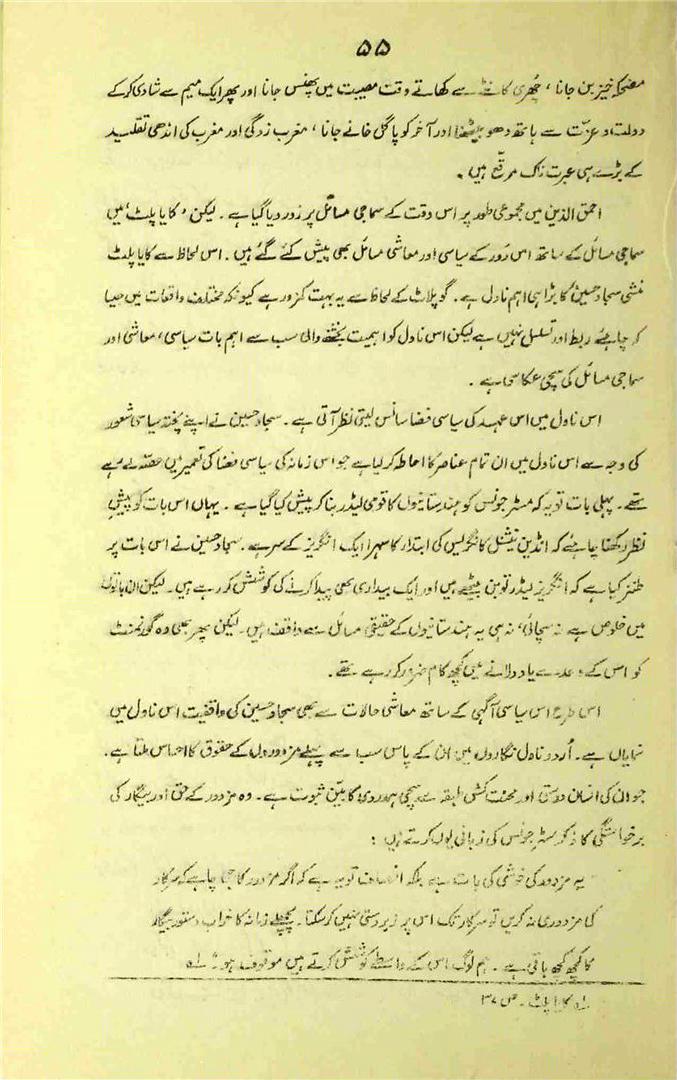 ۵۵
مضحکہ خیز بن جانا، چھری کانٹے سے کھاتے وقت مصیبت میں پھنس جانا اور پھر ایک میم سے شادی کر کے
دولت و عزت سے ہاتھ دھو بیٹھنا اور آخر کو پاگل خانے جانا، مغرب زدگی اور مغرب کی اندھی تقلید
کے بڑے ہی عبرت ناک مرقع ہیں۔
احمق الذین میں مجموعی طور پر اس وقت کے سماجی مسائل پر زور دیا گیا ہے۔ لیکن 'کایا پلٹ' میں
سماجی مسائل کے ساتھ اس دور کے سیاسی اور معاشی مسائل بھی پیش کئے گئے ہیں۔ اس لحاظ سے کایا پلٹ
منشی سجاد حسین کا بڑا ہی اہم ناول ہے۔ گو پلاٹ کے لحاظ سے یہ بہت کمزور ہے کیونکہ مختلف واقعات میں جیسا
کہ چاہئے ربط اور تسلسل نہیں ہے لیکن اس ناول کو اہمیت بخشنے والی سب سے اہم بات سیاسی، معاشی اور
سماجی مسائل کی سچی عکاسی ہے۔
اس ناول میں اس عہد کی سیاسی فضا سانس لیتی نظر آتی ہے۔ سجاد حسین نے اپنے پختہ سیاسی شعور
کی وجہ سے اس ناول میں ان تمام عناصر کا احاطہ کر لیا ہے جو اس زمانہ کی سیاسی فضا کی تعمیر میں حصہ لے رہے
تھے۔ پہلی بات تو یہ کہ مسٹر جونس کو ہندستانیوں کا قومی لیڈر بنا کر پیش کیا گیا ہے۔ یہاں اس بات کو پیش
نظر رکھنا چاہئے کہ انڈین نیشنل کانگریس کی ابتدار کا سہرا ایک انگریز کے سر ہے۔ سجاد حسین نے اس بات پر
طنز کیا ہے کہ انگریز لیڈر تو بن بیٹھے ہیں اور ایک بیداری بھی پیدا کرنے کی کوشش کر رہے ہیں۔ لیکن ان باتوں
میں خلوص ہے نہ سچائی، نہ ہی یہ ہندستانیوں کے حقیقی مسائل سے واقف ہیں۔ لیکن پھر بھی وہ گورنمنٹ
کو اس کے وعدے یاد دلانے میں کچھ کام ضرور کر رہے تھے۔
اس طرح اس سیاسی آگہی کے ساتھ معاشی حالات سے بھی سجاد حسین کی واقفیت اس ناول میں
نمایاں ہے۔ اُردو ناول نگاروں میں ان کے پاس سب سے پہلے مزدوروں کے حقوق کا احساس ملتا ہے۔
جو ان کی انسان دوستی اور محنت کش طبقہ سے سچی ہمدردی کا بیّن ثبوت ہے۔ وہ مزدور کے حق اور بیگار کی
برخواستگی کا ذکر مسٹر جونس کی زبانی یوں کرتے ہیں:
یہ مزدور کی خوشی کی بات ہے بلکہ انصاف تو یہ ہے کہ اگر مزدور کا جی چاہے کہ سرکار
کی مزدوری نہ کریں تو سرکار تک اس پر زبردستی نہیں کر سکتا۔ پچھلے زمانہ کا خراب دستور بیگار
کا کچھ کچھ باقی ہے۔ ہم لوگ اس کے واسطے کوشش کرتے ہیں موقوف ہو۔" لہ
لہ کایا پلٹ۔ ص ۳۷